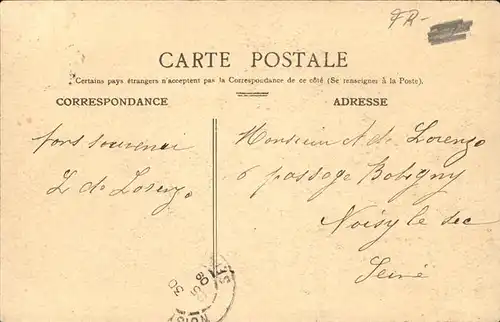 FR-
CARTE POSTALE
Certains pays étrangers n'acceptent pas la Correspondance de ce côté (Se renseigner à la Poste).
CORRESPONDANCE
ADRESSE
souvenir
L de Lorenzo
Monsieur A. de Lorenzo
6 passage Bobigny
Noisy le Sec
Seine